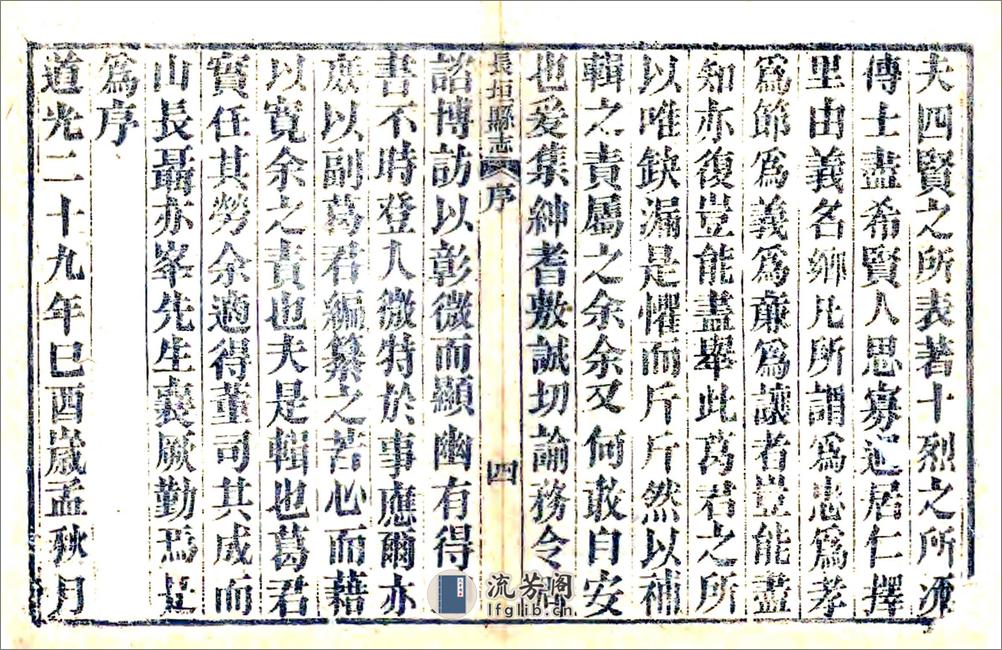 夫四賢之所表著十烈之所流
傳士盡希賢人思寡過居仁擇
里由義名鄉凡所謂為忠為孝
為節為義為廉為讓者豈能盡
知亦復豈能盡舉此葛君之所
以唯缺漏是懼而斤斤然以補
輯之責屬之余余又何敢自安
也爰集紳耆敷誠切諭務令
諮博訪以彰微而顯幽有得
書不時登入微特於事應爾亦
庶以副葛君編纂之苦心而藉
以寬余之責也夫是輯也葛君
實任其勞余適得董司其成而
山長聶亦峯先生襄厥勤焉是
為序
道光二十九年己酉歲孟秋月
長垣縣志 序 四
流芳阁
lfglib.cn